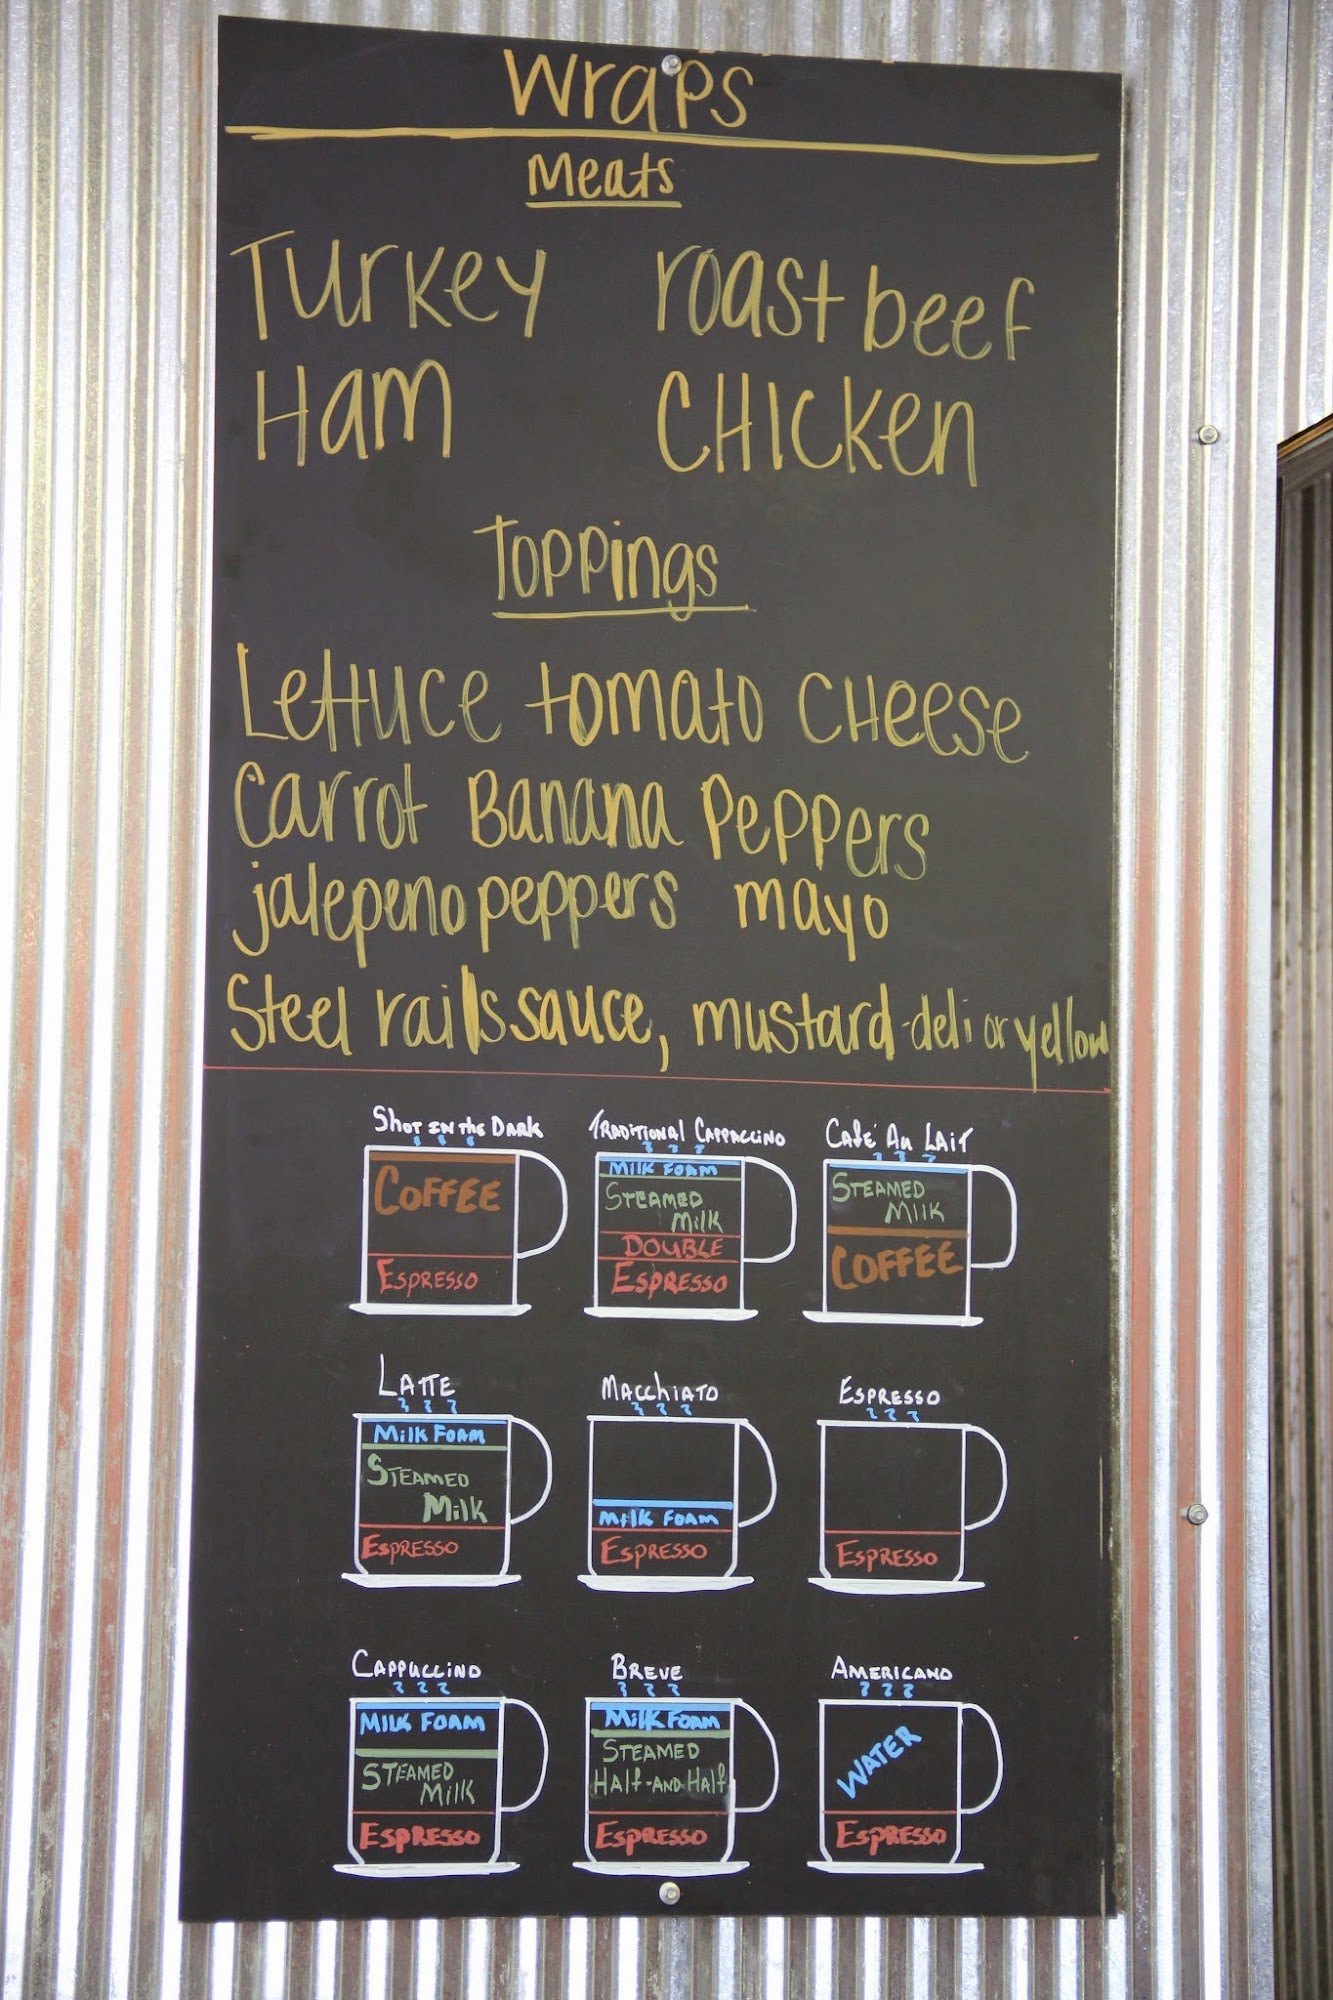 Wraps
Meats
Turkey roast beef
Ham CHicken
Toppings
Lettuce tomato CHeese
Carrot Banana Peppers
jalepeno peppers mayo
Steel rails sauce, mustard-deli or yellow
Shot in the Dark
Traditional Cappaccino
Café Au Lait
COFFEE
ESPRESSO
MILK FOAM
STEAMED
MILK
DOUBLE
ESPRESSO
STEAMED
MILK
COFFEE
LATTE
MACCHIATO
ESPRESSO
MILK FOAM
STEAMED
MILK
ESPRESSO
MILK FOAM
ESPRESSO
ESPRESSO
CAPPUCCINO
BREVE
AMERICANO
MILK FOAM
STEAMED
MILK
ESPRESSO
MILK FOAM
STEAMED
HALF-AND-HALF
ESPRESSO
WATER
ESPRESSO